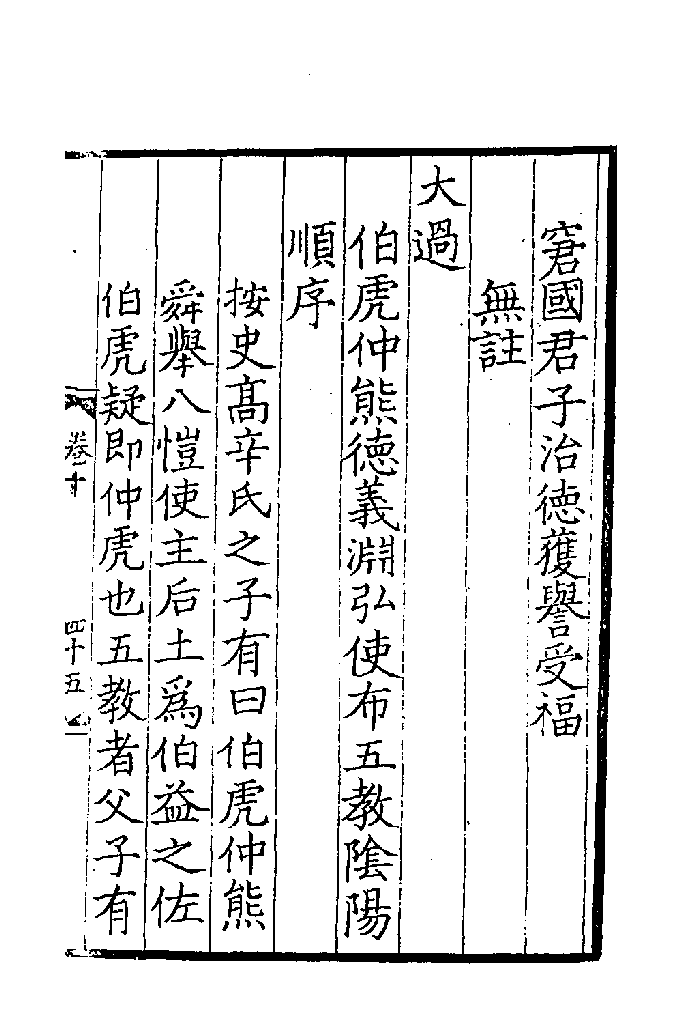 窘國君子治徳獲譽受福
無註
大過
伯虎仲熊德義淵弘使布五教陰陽
順序
按史髙辛氏之子有曰伯虎仲熊
舜舉八愷使主后土爲伯益之佐
伯虎疑即仲虎也五教者父子有
卷十
四十五